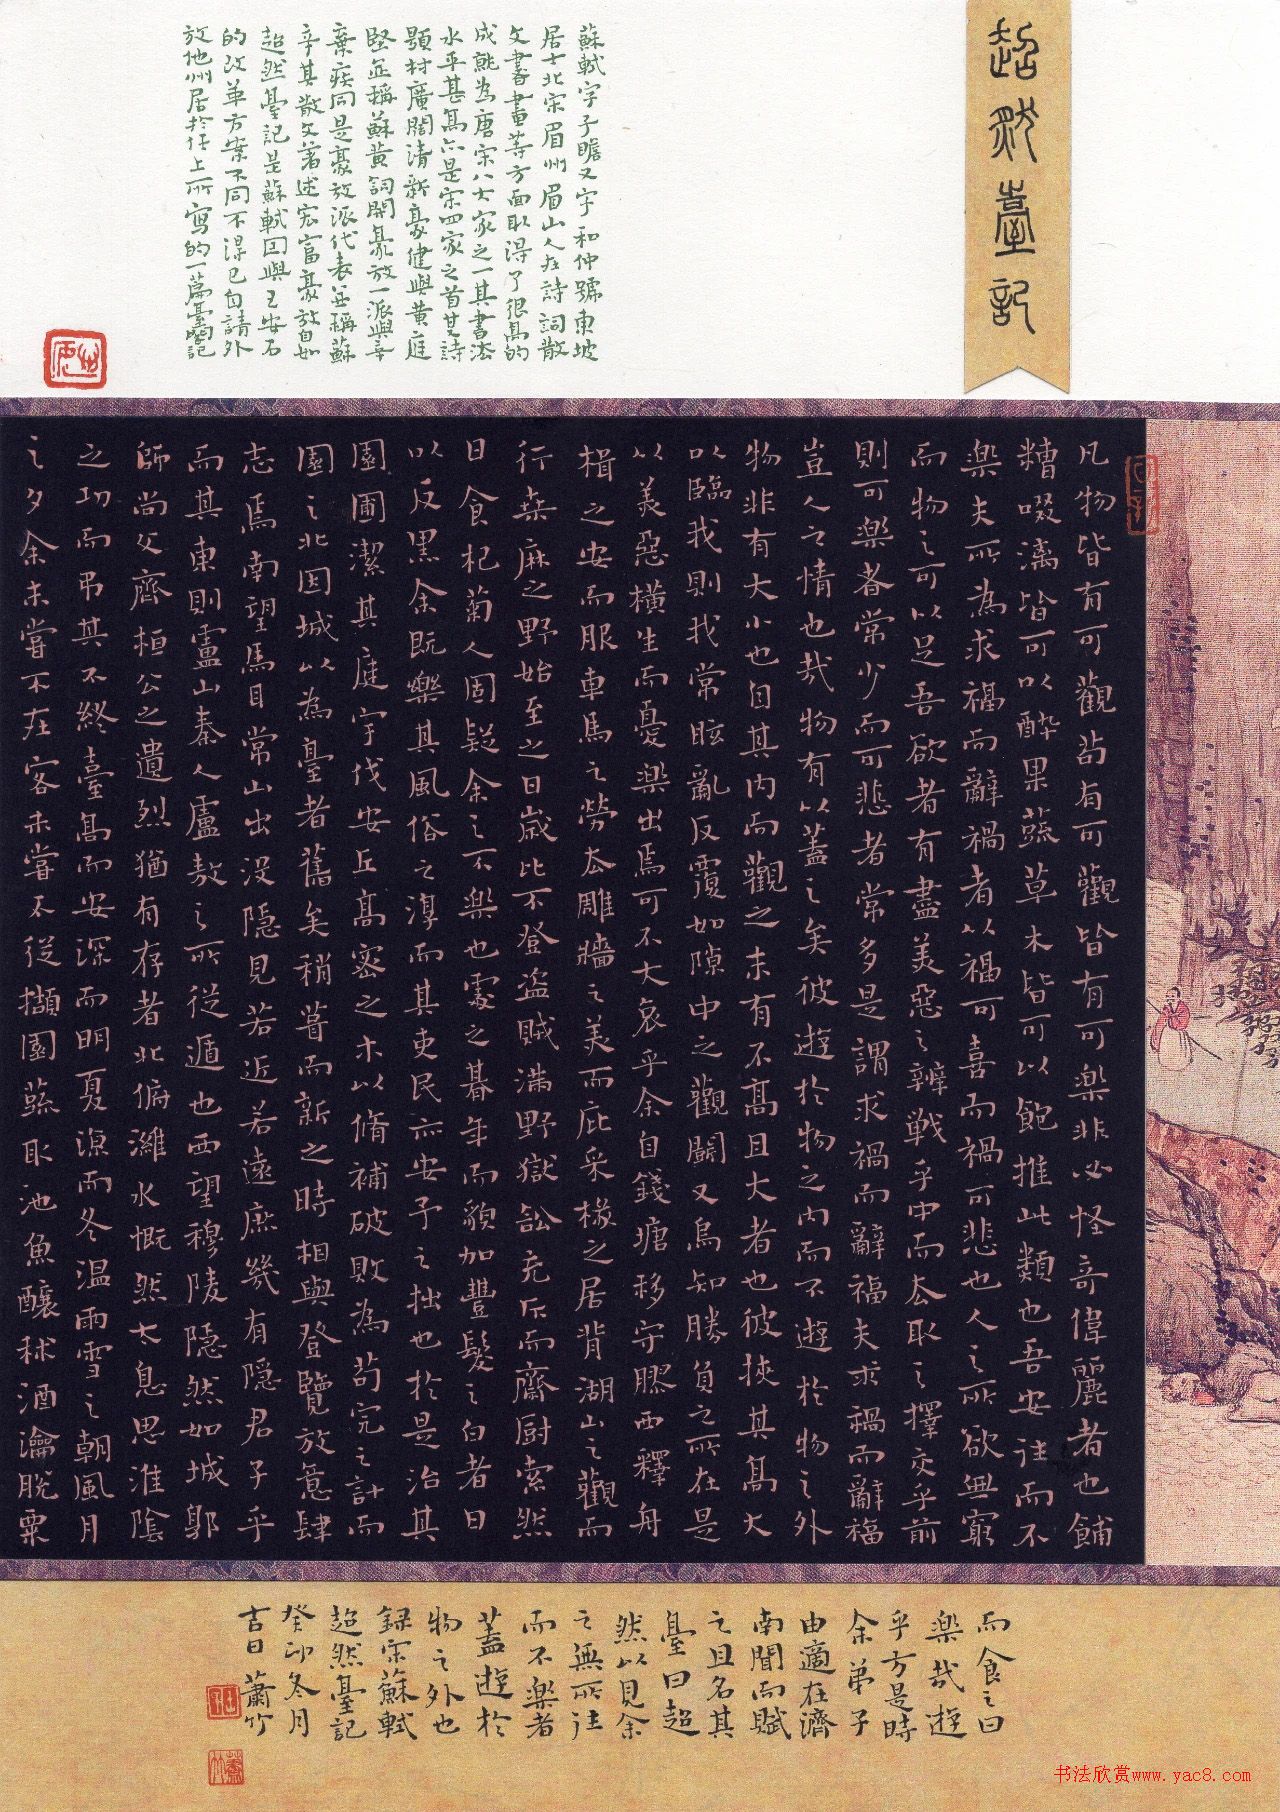 超然臺記
蘇軾字子瞻又字和仲號東坡
居士北宋眉州眉山人在詩詞散
文書畫等方面取得了很高的
成就為唐宋八大家之一其書法
水平甚高亦是宋四家之首其詩
題材廣闊清新豪健與黃庭
堅並稱蘇黃詞開豪放一派與辛
棄疾同是豪放派代表並稱蘇
辛其散文著述宏富豪放自如
超然臺記是蘇軾因與王安石
的改革方案不同不得已自請外
放他州居於任上所寫的一篇臺閣記
凡物皆有可觀苟有可觀皆有可樂非必怪奇偉麗者也餔
糟啜漓皆可以醉果蔬草木皆可以飽推此類也吾安往而不
樂夫所為求福而辭禍者以福可喜而禍可悲也人之所欲無窮
而物之可以足吾欲者有盡美惡之辨戰乎中而去取之擇交乎前
則可樂者常少而可悲者常多是謂求禍而辭福夫求禍而辭福
豈人之情也哉物有以蓋之矣彼遊於物之內而不遊於物之外
物非有大小也自其內而觀之未有不高且大者也彼挾其高大
以臨我則我常眩亂反覆如隙中之觀鬬又烏知勝負之所在是
以美惡橫生而憂樂出焉可不大哀乎余自錢塘移守膠西釋舟
楫之安而服車馬之勞去雕牆之美而庇采椽之居背湖山之觀而
行桒麻之野始至之日歲比不登盜賊滿野獄訟充斥而齋厨索然
日食杞菊人固疑余之不樂也處之朞年而貌加豐髮之白者日
以反黑余既樂其風俗之淳而其吏民亦安予之拙也於是治其
園圃潔其庭宇伐安丘高密之木以脩補破敗為苟完之計而
園之北因城以為臺者舊矣稍葺而新之時相與登覽放意肆
志焉南望馬耳常山出沒隱見若近若遠庶幾有隱君子乎
而其東則盧山秦人盧敖之所從遁也西望穆陵隱然如城郭
師尚父齊桓公之遺烈猶有存者北俯濰水慨然太息思淮陰
之功而弔其不終臺高而安深而明夏涼而冬溫雨雪之朝風月
之夕余未嘗不在客未嘗不從擷園蔬取池魚釀秫酒瀹脫粟
而食之曰
樂哉遊
乎方是時
余弟子
由適在濟
南聞而賦
之且名其
臺曰超
然以見余
之無所往
而不樂者
蓋遊於
物之外也
録宋蘇軾
超然臺記
癸卯冬月
吉日蕭竹
蕭竹
书法欣赏www.yac8.com